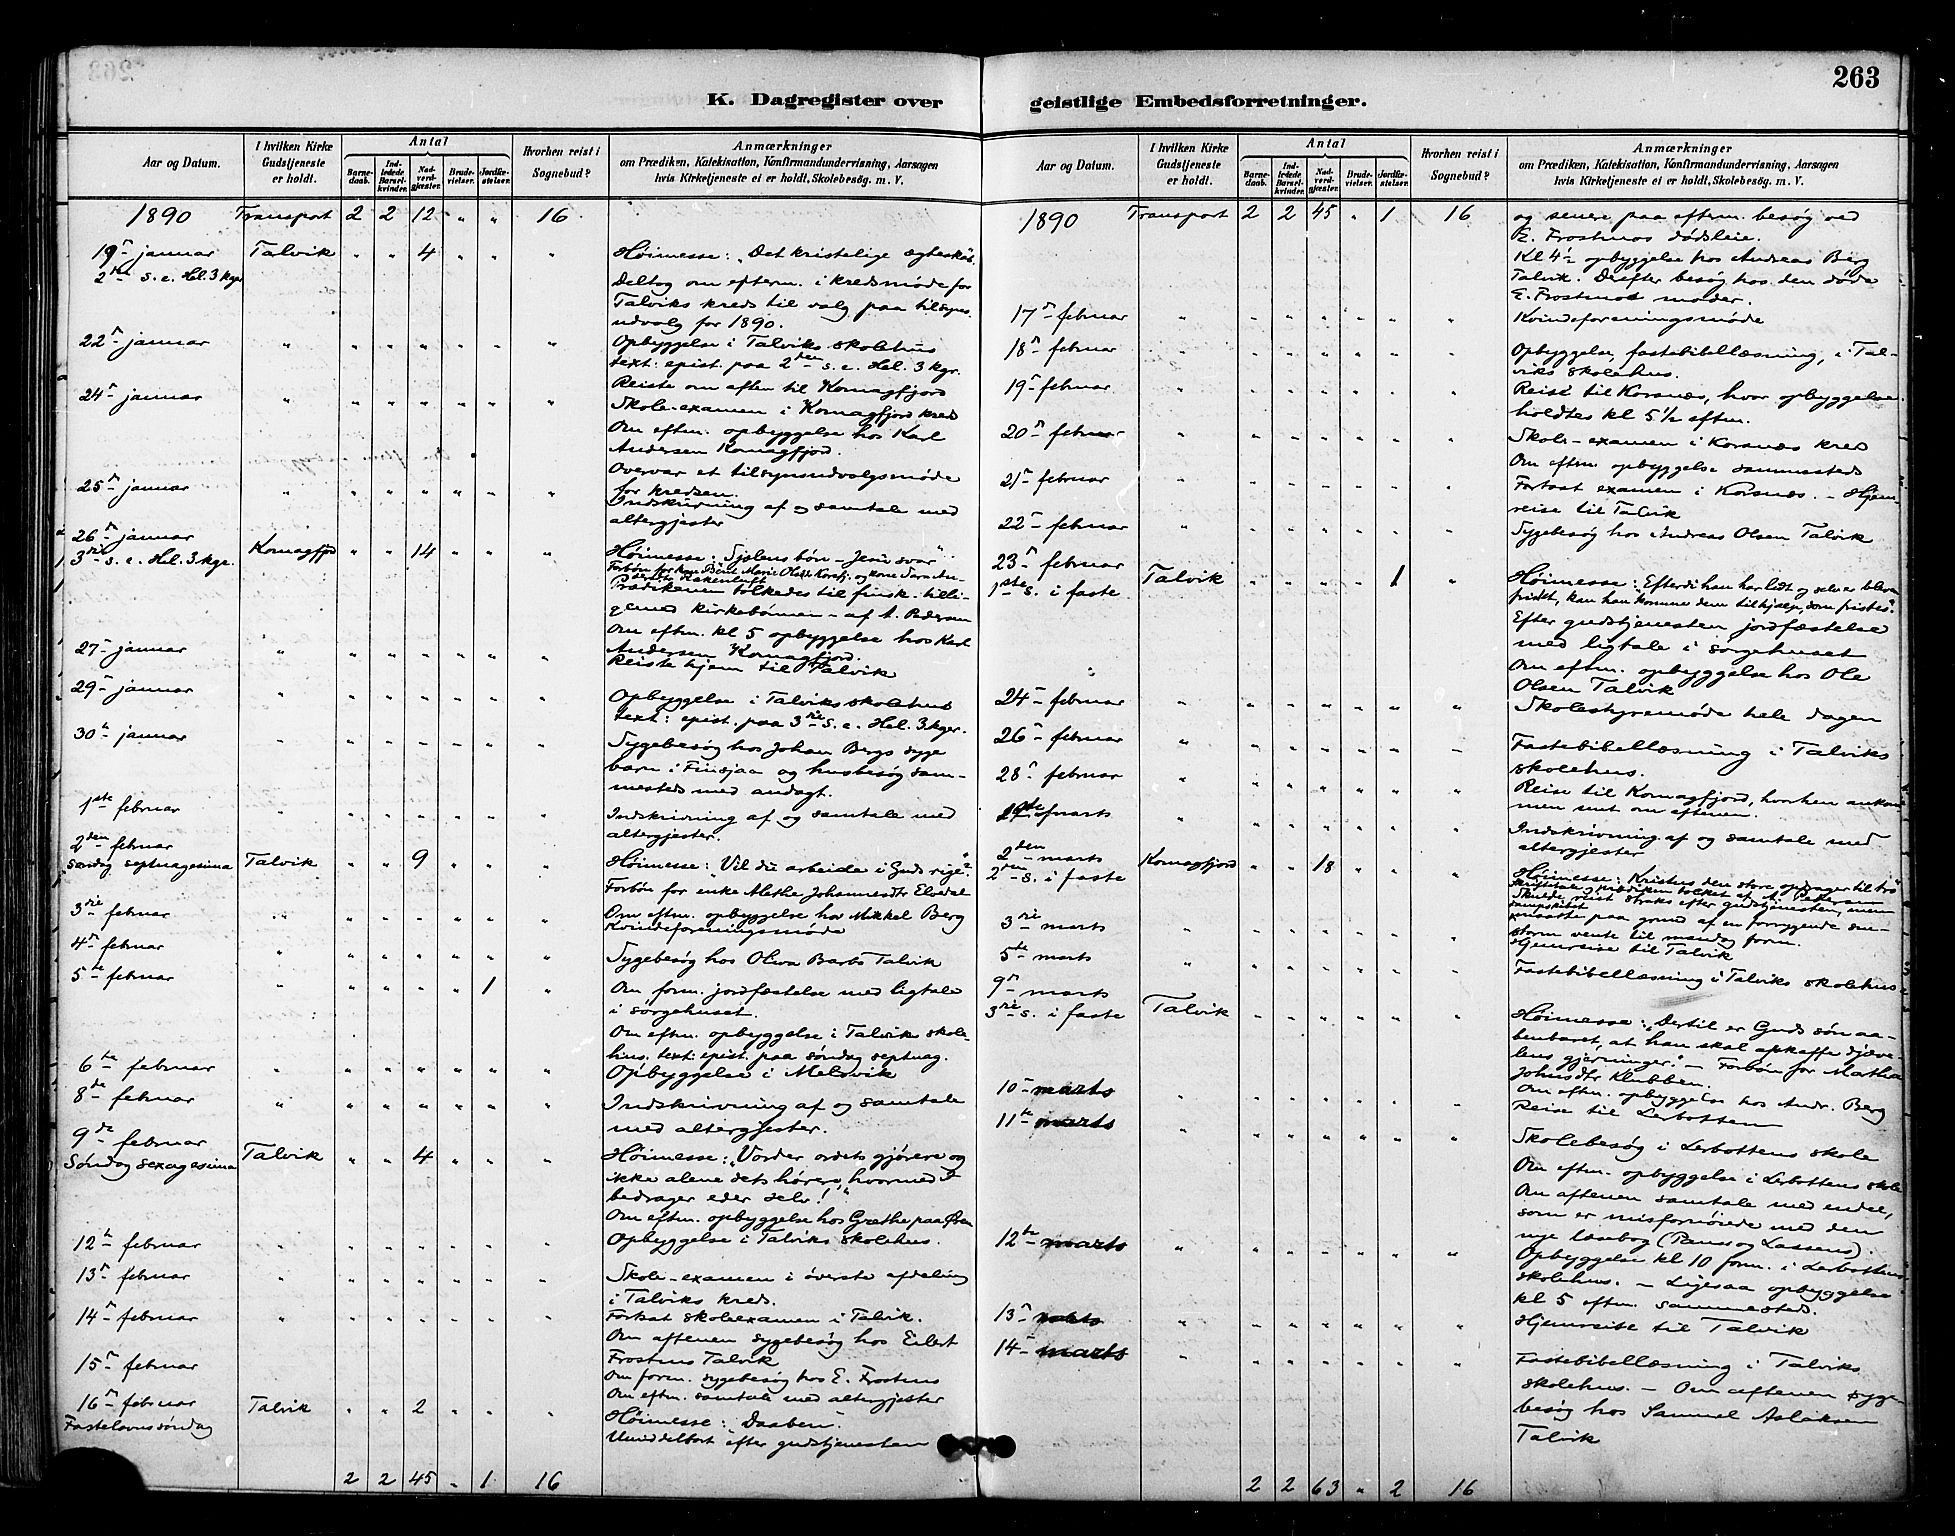 263
K. Dagregister over
geistlige Embedsforretninger.
Aar og Datum.
I hvilken Kirke Gudstjeneste er holdt.
Antal
Barnedaab.
Indledede Barselkvinder.
Nadverdgjester.
Brudevielser.
Jordfæstelser.
Hvorhen reist i Sognebud?
Anmærkninger
om Prædiken, Katekisation, Konfirmandundervisning, Aarsagen
hvis Kirketjeneste ei er holdt, Skolebesøg. m. V.
1890 Transport 2 2 12 " " 16
19 januar Talvik " " 4 " " " Høimesse: "Det kristelige ægteskab.
2den s. e. Hel. 3 kgr
Deltog om efterm. i kredsmøde for
Talviks kreds til valg paa tilsyns-
udvalg for 1890.
22 januar " " " " " " " Opbyggelse i Talviks skolehus
text: epist. paa 2den s. e. Hel. 3 kgr.
24 januar " " " " " " " Reiste om aften til Komagfjord
Skole-examen i Komagfjord kreds
Om eftm. opbyggelse hos Karl
Andersen Komagfjord.
25 januar " " " " " " " Overvar et tilsynsudvalgsmøde
for kredsen.
Indskrivning af og samtale med
altergjester
26 januar
3die s. e. Hel. 3 kgr. Komagfjord " " 14 " " " Høimesse: "Sjælens bøn - Jesu svar"
Prædikenen tolkedes til finsk tilli-
gemed kirkebønnen - af A. Pedersen
Om eftm. kl 5 opbyggelse hos Karl
Andersen Komagfjord.
27 januar " " " " " " " Reiste hjem til Talvik
29 januar " " " " " " " Opbyggelse i Talviks skolehus
text: epist. paa 3die s. e. Hel. 3 kgr.
30te januar " " " " " " " Sygebesøg hos Johan Bergs syge
barn i Finsjaa og husbesøg sam-
mesteds med andagt.
1ste februar " " " " " " " Indskrivning af og samtale med
altergjester.
2den februar
søndag septuagesima Talvik " " 9 " " " Høimesse: "Vil du arbeide i Guds rige"?
Forbøn for enke Methe Johannesdtr Elvedal
Om eftm. opbyggelse hos Mikkel Berg
3die februar " " " " " " " Kvindeforeningsmøde
4 februar " " " " " " " Sygebesøg hos Oliva Barts Talvik
5te februar " " " " " 1 " Om form. jordfæstelse med ligtale
i sørgehuset.
Om eftm. opbyggelse i Talvik skole-
hus. text: epist. paa søndag septuag.
6te februar " " " " " " " Opbyggelse i Melsvik
8de februar " " " " " " " Indskrivning af og samtale
med altergjester.
9de februar
Søndag sexagesima Talvik " " 4 " " " Høimesse: "Vorder ordets gjørere og
ikke alene dets hørere, hvormed I
bedrager eder selv!"
Om eftm. opbyggelse hos Grethe paa Øren
12te februar " " " " " " " Opbyggelse i Talviks skolehus.
13 februar " " " " " " " Skole-examen i øverste afdeling
i Talviks kreds.
14 februar " " " " " " " Fortsat skoleexamen i Talvik.
Om aftenen sygebesøg hos Eilert
Frostmos Talvik
15 februar Om form. sygebesøg hos E. Frostmos
Om eftm. samtale med altergjester
16 februar Talvik " " 2 " " " Høimesse: Daaben.
Fastelavns søndag
Umiddelbart efter gudstjenesten
2 2 45 " 1 16
Aar og Datum.
I hvilken Kirke Gudstjeneste er holdt.
Antal
Barnedaab.
Indledede Barselkvinder.
Nadverdgjester.
Brudevielser.
Jordfæstelser.
Hvorhen reist i Sognebud?
Anmærkninger
om Prædiken, Katekisation, Konfirmandundervisning, Aarsagen
hvis Kirketjeneste ei er holdt, Skolebesøg. m. V.
1890 Transport 2 2 45 " 1 16 og senere paa efterm. besøg ved
E. Frostmos dødsleie.
Kl 4 opbyggelse hos Andreas Berg
Talvik. Derefter besøg hos den døde
E. Frostmos moder.
17 februar " " " " " " " Kvindeforeningsmøde
18 februar " " " " " " " Opbyggelse, fastebibellæsning, i Tal-
viks skolehus.
19 februar " " " " " " " Reist til Korsnæs, hvor opbyggelse
holdtes kl 5 1/2 eftm.
20 februar " " " " " " " Skole-examen i Korsnæs kreds
Om eftm. opbyggelse sammesteds
21 februar " " " " " " " Fortsat examen i Korsnæs. - Hjem-
reise til Talvik
22 februar " " " " " " " Sygebesøg hos Andreas Olsen Talvik
23 februar
1ste s. i faste Talvik " " " " 1 " Høimesse: "Efterdi han har lidt og selv er bleven
fristet, kan han komme dem til hjælp, som fristes".
Efter gudstjenesten jordfæstelse
med ligtale i sørgehuset
Om eftm. opbyggelse hos Ole
Olsen Talvik
24 februar " " " " " " " Skolestyremøde hele dagen
26 februar " " " " " " " Fastebibellæsning i Talviks
skolehus.
28 februar " " " " " " " Reise til Komagfjord, hvorhen ankom-
men sent om aftenen.
1ste marts " " " " " " " Indskrivning af og samtale med
altergjester
2den marts
2den s. i faste Komagfjord " " 18 " " " Høimesse: "Kristus den store opdrager til tro"
Skriftetale og prædiken tolket af A. Pedersen
reist straks efter gudstjenesten, men
maatte paa grund af en forrygende sne-
storm vente til mandag form.
3die marts " " " " " " " Hjemreise til Talvik
5te marts " " " " " " " Fastebibellæsning i Talviks skolehus
9 marts
3die s. i faste Talvik " " " " " " Høimesse: "Dertil er Guds søn aa-
benbaret, at han skal afskaffe djæve-
lens gjerninger." - Forbøn for Martha
Johnsdtr Klubben.
Om eftm. opbyggelse hos Andr. Berg
10 marts " " " " " " " Reise til Lerbotten
11te marts " " " " " " " Skolebesøg i Lerbottens skole
Om eftm. opbyggelse i Lerbottens skole
Om aftenen samtale med endel,
som er misfornøiede med den
nye læsebog (Paus og Lassens).
12te marts " " " " " " " Opbyggelse kl 10 form. i Lerbottens
skolehus. - Ligesaa opbyggelse
kl 5 eftm. sammesteds.
13 marts " " " " " " " Hjemreise til Talvik
14 marts " " " " " " " Fastebibellæsning i Talviks
skolehus. - Om aftenen syge-
besøg hos Samuel Aslaksen
Talvik
2 2 63 " 2 16